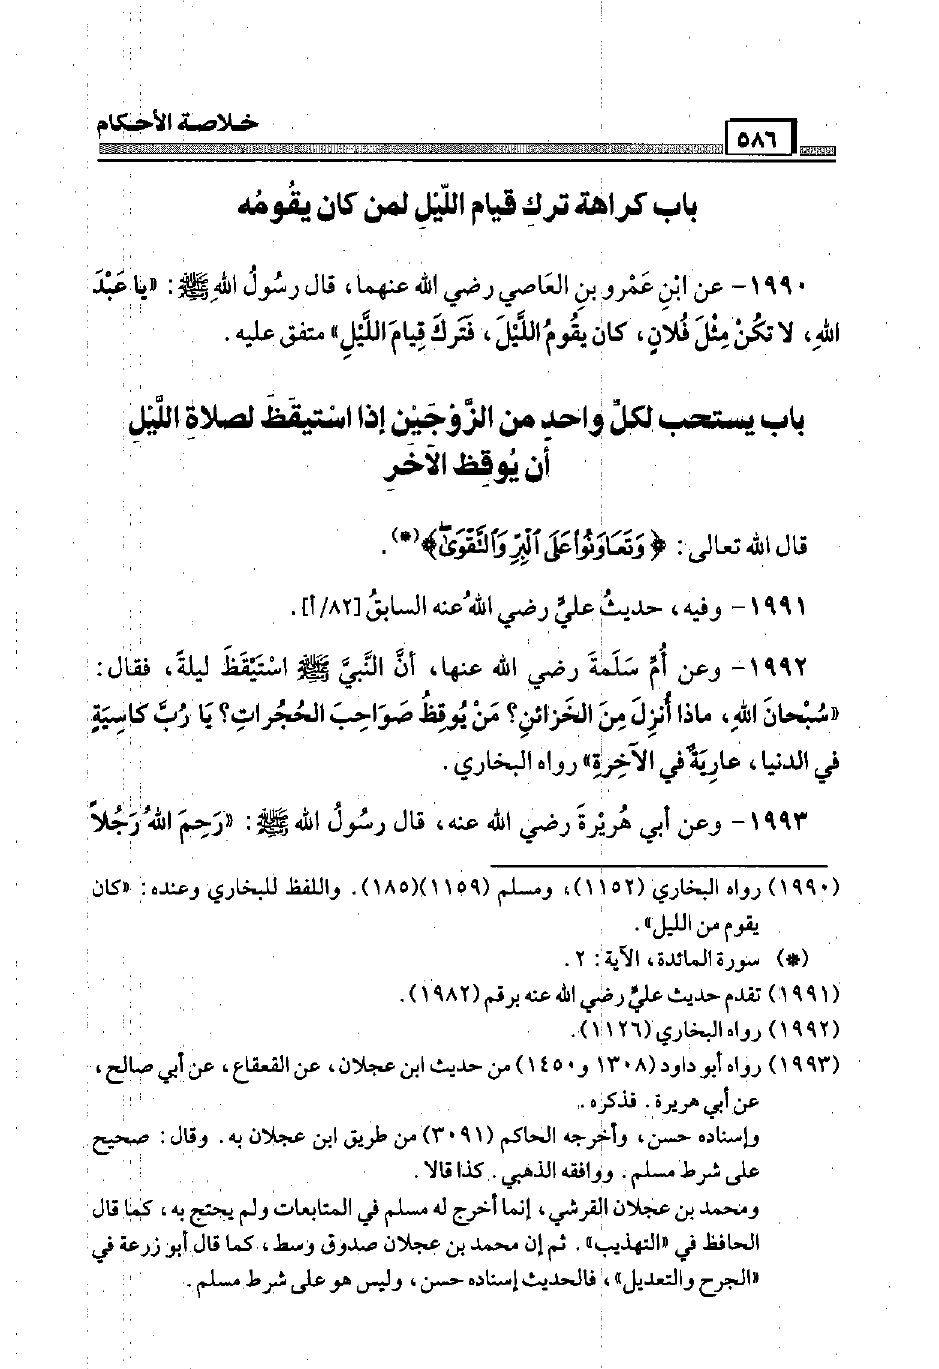 خلاصة الأحكام
٥٨٦
باب كراهة تركِ قيام اللّيْلِ لمن كان يقُومُه
١٩٩٠- عن ابْنِ عَمْرو بنِ العَاصي رضي الله عنهما، قال رسُولُ اللهِ ﷺ: «يا عَبْدَ
اللهِ، لا تكُنْ مِثْلَ فُلانٍ، كان يقُومُ اللَّيْلَ، فَتَركَ قِيامَ اللَّيْلِ» متفق عليه.
باب يستحب لكلِّ واحدٍ من الزَّوْجَيْن إذا اسْتيقَظَ لصلاةِ اللَّيْلِ
أن يُوقِظ الآخَرِ
قال الله تعالى: ﴿وَتَعَاوَنُوا عَلَى ٱلْبِرِّ وَٱلتَّقْوَىٰ﴾(*).
١٩٩١- وفيه، حديثُ عليٍّ رضي اللهُ عنه السابقُ [٨٢/أ].
١٩٩٢- وعن أُمِّ سَلَمةَ رضي الله عنها، أنَّ النَّبيَّ ﷺ اسْتَيْقَظَ ليلةً، فقال:
«سُبْحانَ اللهِ، ماذا أُنزِلَ مِنَ الخَزائنِ؟ مَنْ يُوقِظُ صَوَاحِبَ الحُجُراتِ؟ يَا رُبَّ كاسِيَةٍ
في الدنيا، عارِيَةٌ في الآخِرةِ» رواه البخاري.
١٩٩٣- وعن أبي هُريْرةَ رضي الله عنه، قال رسُولُ الله ﷺ: «رَحِمَ اللهُ رَجُلاً
(١٩٩٠) رواه البخاري (١١٥٢)، ومسلم (١١٥٩)(١٨٥). واللفظ للبخاري وعنده: «كان
يقوم من الليل».
(*) سورة المائدة، الآية: ٢.
(١٩٩١) تقدم حديث عليٍّ رضي الله عنه برقم (١٩٨٢).
(١٩٩٢) رواه البخاري (١١٢٦).
(١٩٩٣) رواه أبو داود (١٣٠٨ و١٤٥٠) من حديث ابن عجلان، عن القعقاع، عن أبي صالح،
عن أبي هريرة. فذكره.
وإسناده حسن، وأخرجه الحاكم (٣٠٩١) من طريق ابن عجلان به. وقال: صحيح
على شرط مسلم. ووافقه الذهبي. كذا قالا.
ومحمد بن عجلان القرشي، إنما أخرج له مسلم في المتابعات ولم يحتج به، كما قال
الحافظ في «التهذيب». ثم إن محمد بن عجلان صدوق وسط، كما قال أبو زرعة في
«الجرح والتعديل»، فالحديث إسناده حسن، وليس هو على شرط مسلم.